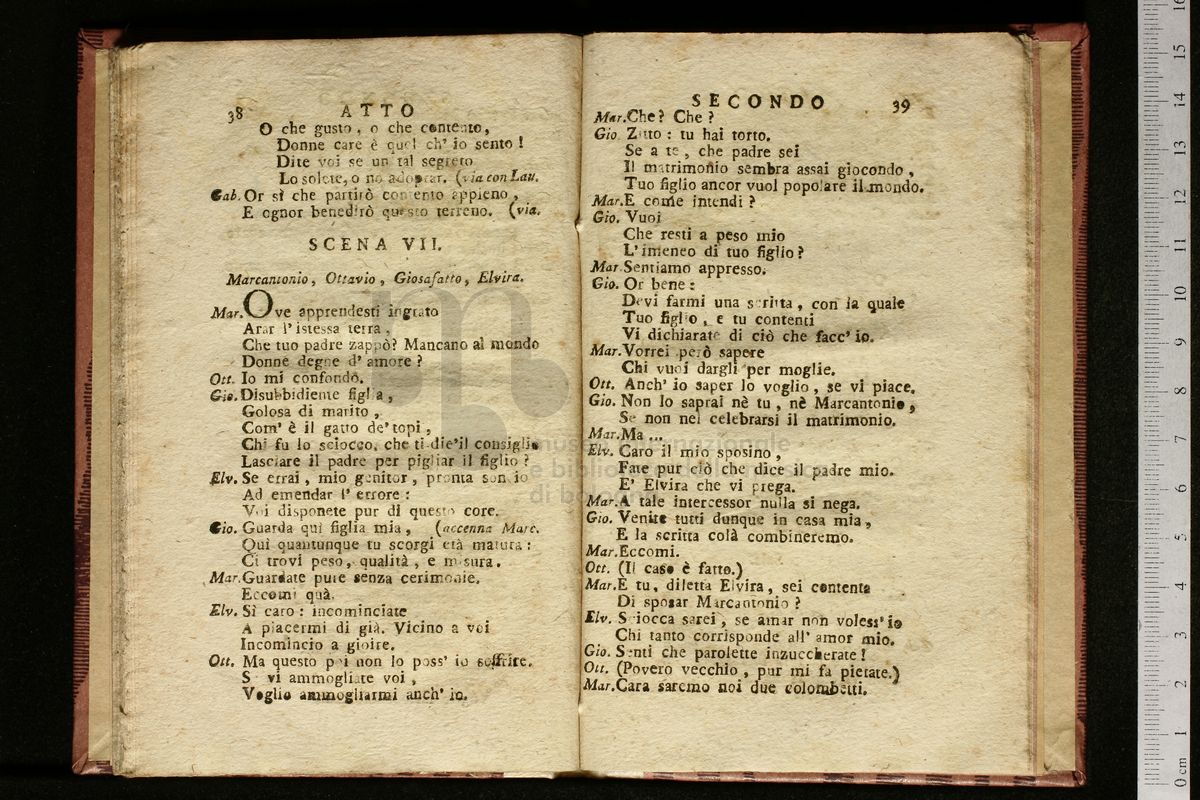 38 ATTO
O che gusto, o che contento,
Donne care è quel ch' io sento!
Dite voi se un tal segreto
Lo solete, o no adoprar. (via con Lau.
Gab. Or sì che partirò contento appieno,
E ognor benedirò questo terreno. (via.
SCENA VII.
Marcantonio, Ottavio, Giosafatto, Elvira.
Mar. Ove apprendesti ingrato
Arar l' istessa terra,
Che tuo padre zappò? Mancano al mondo
Donne degne d' amore?
Ott. Io mi confondo.
Gio. Disubbidiente figlia,
Golosa di marito,
Com' è il gatto de' topi,
Chi fu lo sciocco, che ti die' il consiglio
Lasciare il padre per pigliar il figlio?
Elv. Se errai, mio genitor, pronta son io
Ad emendar l' errore:
Voi disponete pur di questo core.
Gio. Guarda qui figlia mia, (accenna Marc.
Qui quantunque tu scorgi età matura:
Ci trovi peso, qualità, e misura.
Mar. Guardate pure senza cerimonie.
Eccomi quà.
Elv. Sì caro: incominciate
A piacermi di già. Vicino a voi
Incomincio a gioire.
Ott. Ma questo poi non lo poss' io soffrire.
Se vi ammogliate voi,
Voglio ammogliarmi anch' io.
SECONDO 39
Mar. Che? Che?
Gio. Zitto: tu hai torto.
Se a te, che padre sei
Il matrimonio sembra assai giocondo,
Tuo figlio ancor vuol popolare il mondo.
Mar. E come intendi?
Gio. Vuoi
Che resti a peso mio
L' imeneo di tuo figlio?
Mar. Sentiamo appresso.
Gio. Or bene:
Devi farmi una scritta, con la quale
Tuo figlio, e tu contenti
Vi dichiarate di ciò che facc' io.
Mar. Vorrei però sapere
Chi vuoi dargli per moglie.
Ott. Anch' io saper lo voglio, se vi piace.
Gio. Non lo saprai nè tu, nè Marcantonio,
Se non nel celebrarsi il matrimonio.
Mar. Ma ...
Elv. Caro il mio sposino,
Fate pur ciò che dice il padre mio.
E' Elvira che vi prega.
Mar. A tale intercessor nulla si nega.
Gio. Venite tutti dunque in casa mia,
E la scritta colà combineremo.
Mar. Eccomi.
Ott. (Il caso è fatto.)
Mar. E tu, diletta Elvira, sei contenta
Di sposar Marcantonio?
Elv. Sciocca sarei, se amar non voless' io
Chi tanto corrisponde all' amor mio.
Gio. Senti che parolette inzuccherate!
Ott. (Povero vecchio, pur mi fa pietate.)
Mar. Cara saremo noi due colombetti.
museo internazionale
e biblioteca della musica
di bologna
0 cm 1 2 3 4 5 6 7 8 9 10 11 12 13 14 15 16